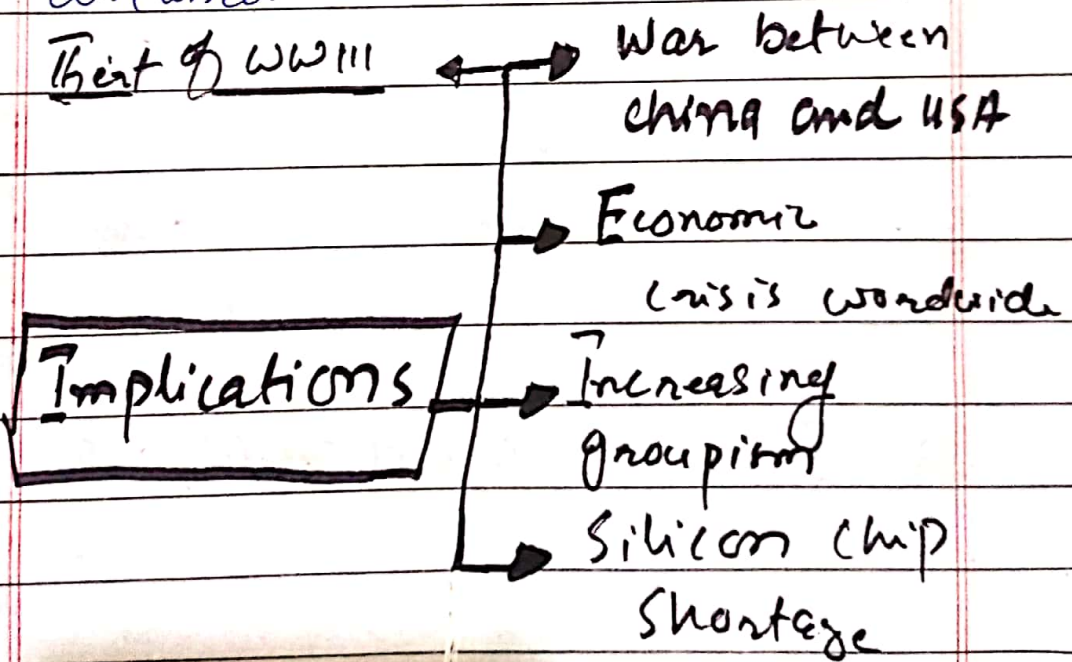 Thert of WW III
War between
china and USA
Economic
crisis wordwide
Implications
Increasing
groupism
Silicon chip
Shortage